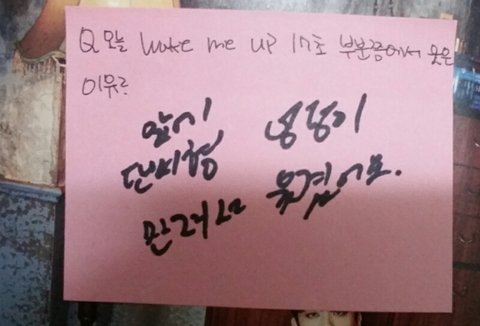 Q 오늘 Wake me up 17초 부분쯤에서 웃은
이유?
앞에 엉덩이
댄서형
만래서 웃겼어요.